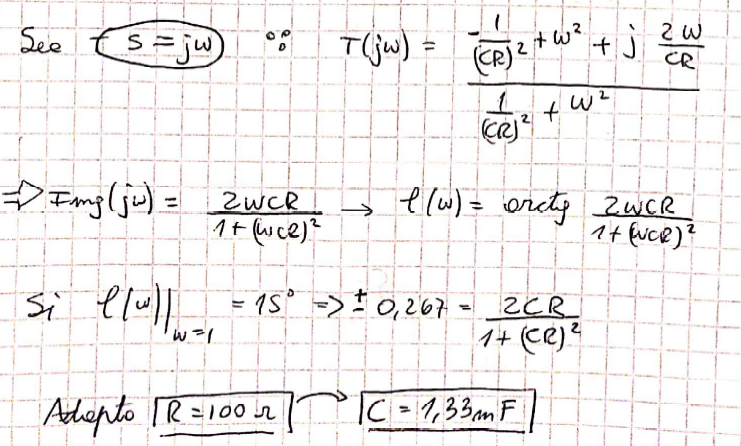 See † s = jω ∴ T(jω) = (-1/(CR)² + ω² + j 2ω/CR) / (1/(CR)² + ω²)
⇒ Img(jω) = 2ωCR / (1+(ωCR)²) → φ(ω) = arctg 2ωCR / (1+(ωCR)²)
Si φ(ω)|ω=1 = 15° => ± 0,267 = 2CR / (1+(CR)²)
Adopto R = 100 Ω → C = 1,33mF